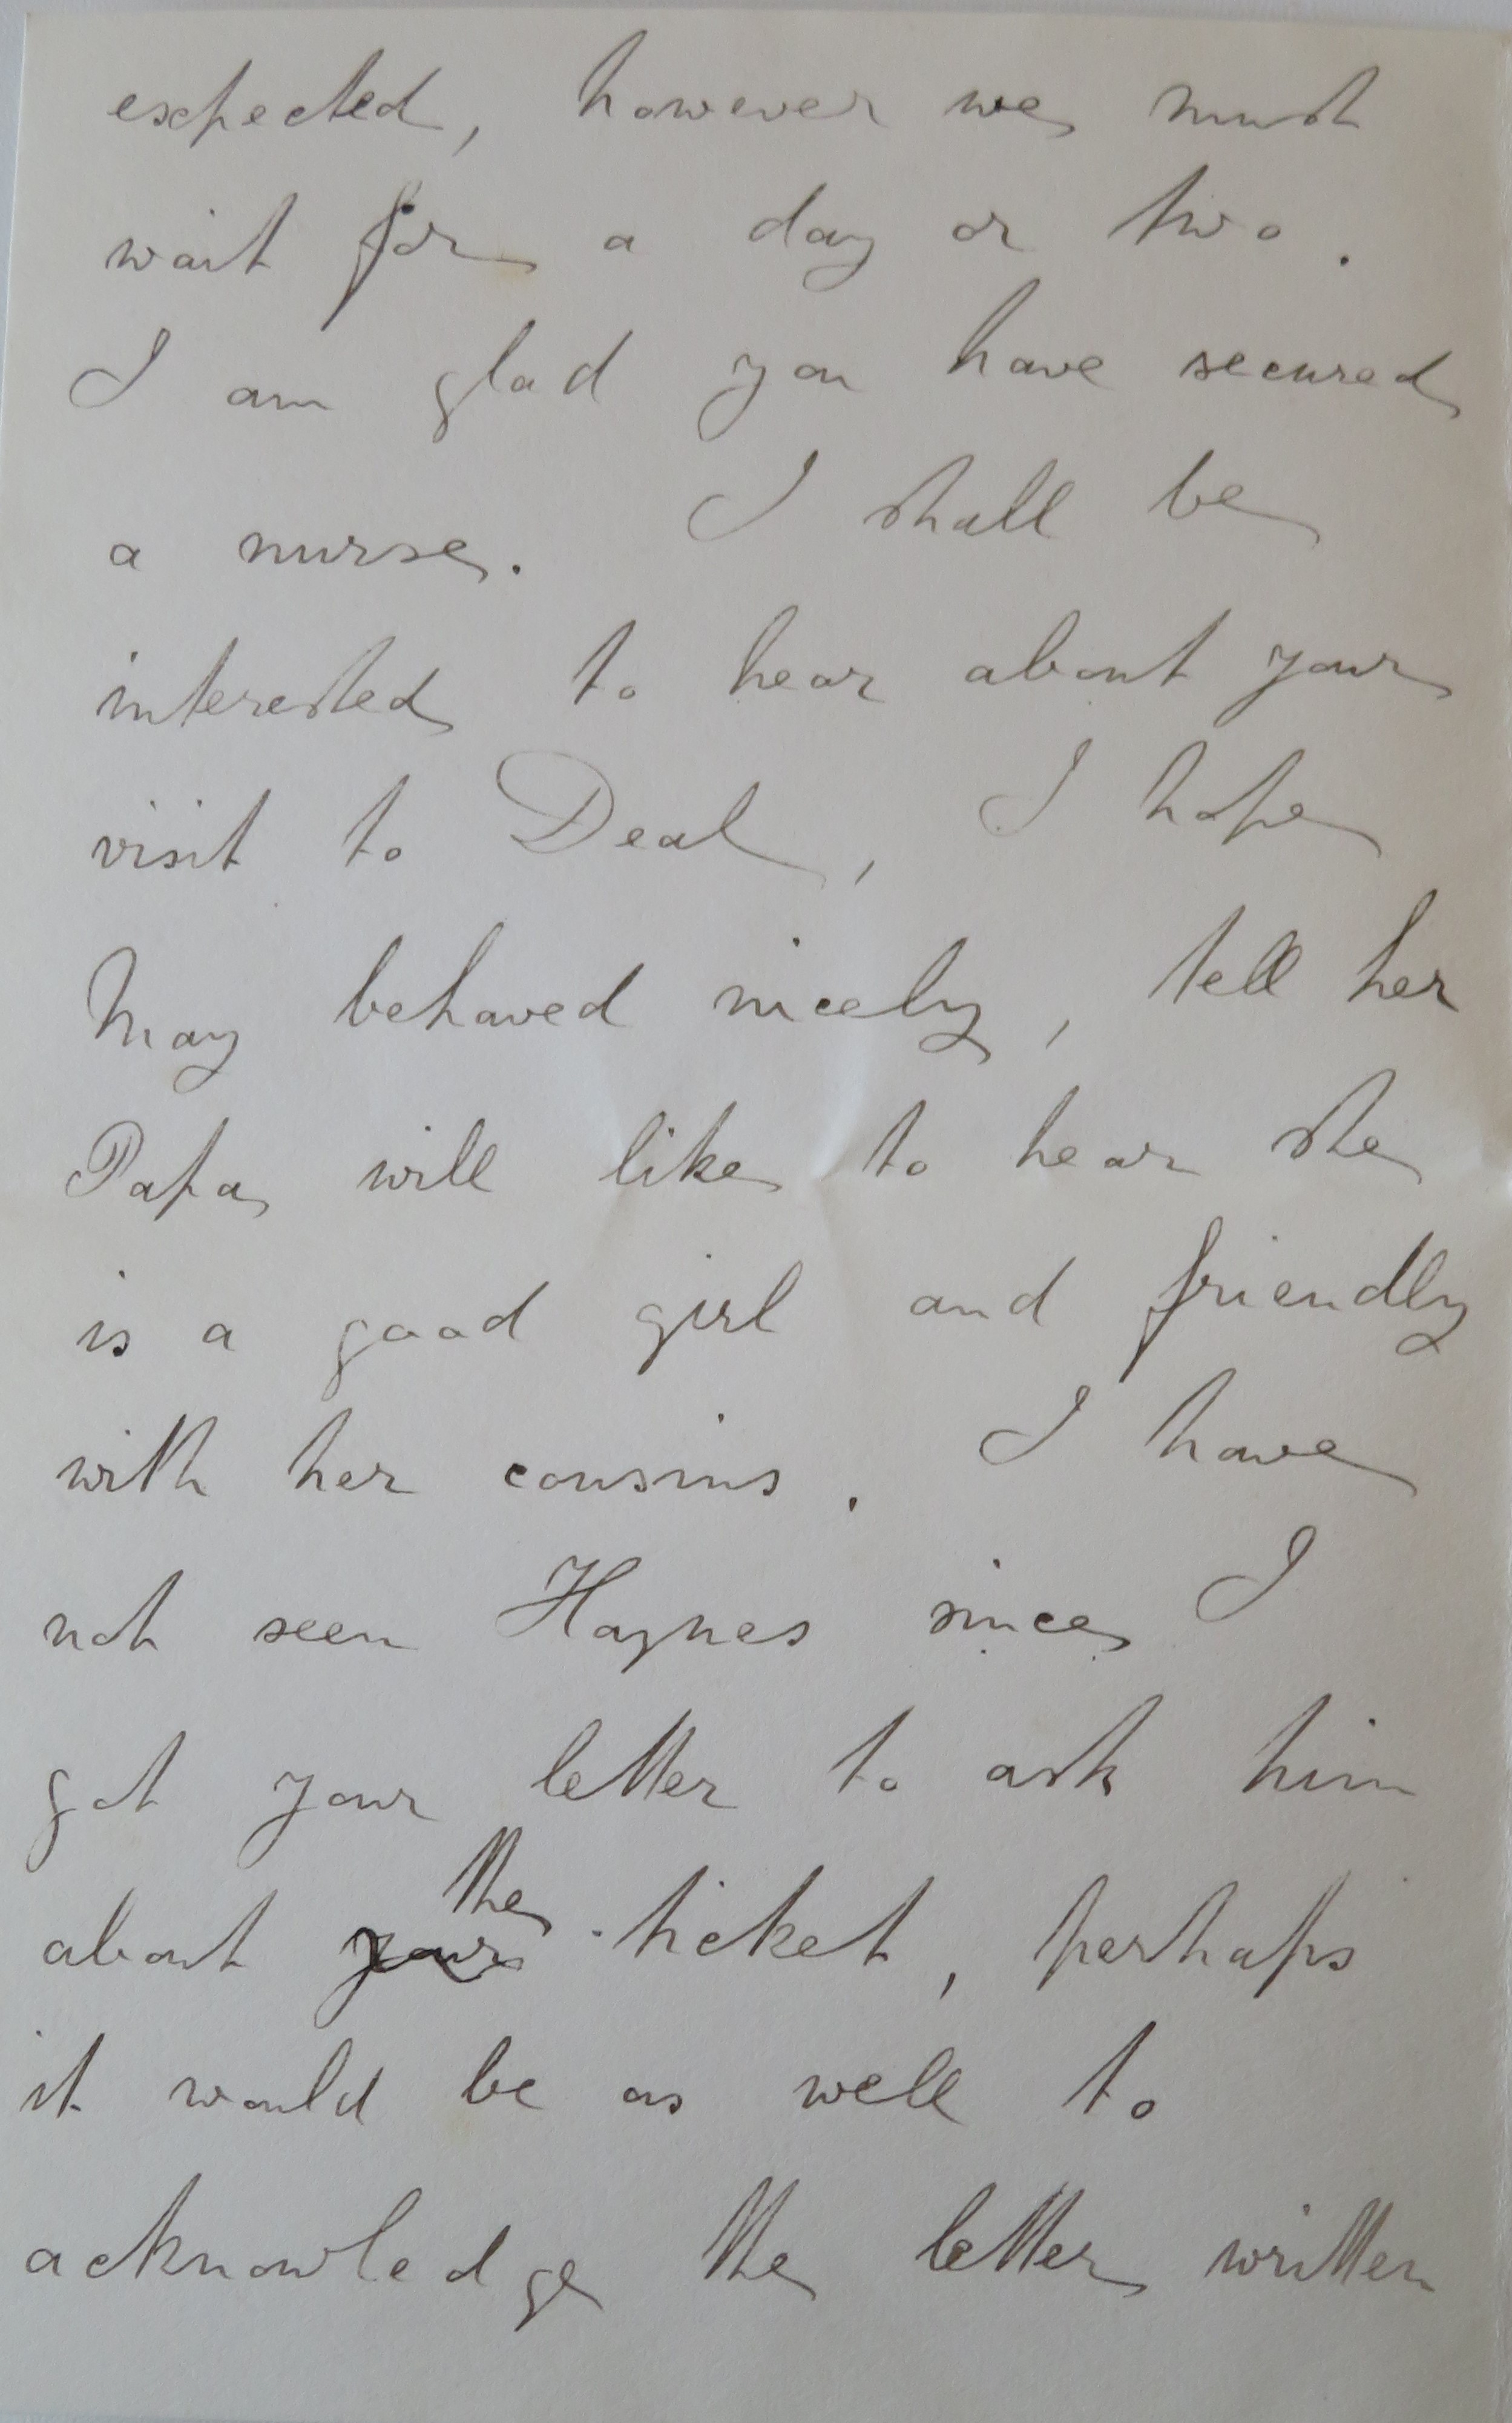 expected, however we must
wait for a day or two.
I am glad you have secured
a nurse. I shall be
interested to hear about your
visit to Deal, I hope
May behaved nicely, tell her
Papa will like to hear she
is a good girl and friendly
with her cousins. I have
not seen Haynes since I
got your letter to ask him
the
about your ticket, perhaps
it would be as well to
acknowledge the letter written